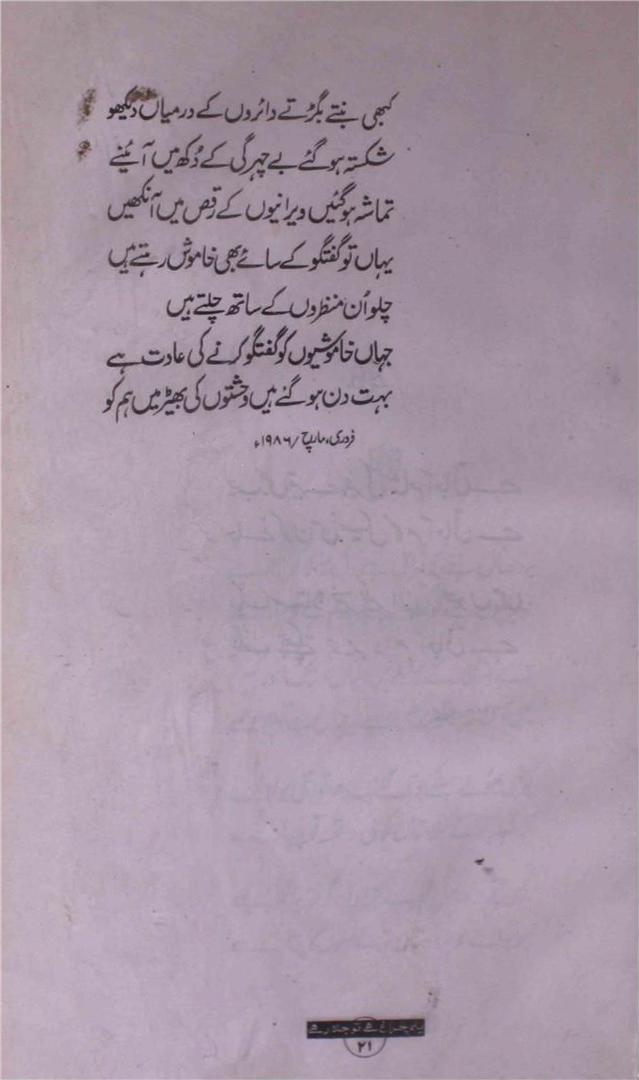 کبھی بنتے بگڑتے دائروں کے درمیاں دیکھو
شکستہ ہو گئے بے چہرگی کے دُکھ میں آئینے
تماشہ ہو گئیں ویرانیوں کے رقص میں آنکھیں
یہاں تو گفتگو کے سائے بھی خاموش رہتے ہیں
چلو اُن منظروں کے ساتھ چلتے ہیں
جہاں خاموشیوں کو گفتگو کرنے کی عادت ہے
بہت دن ہو گئے ہیں وحشتوں کی بھیڑ میں ہم کو
فروری، مارچ / ۱۹۸۶ء
یہ چراغ ہے تو جلا رہے
۲۱